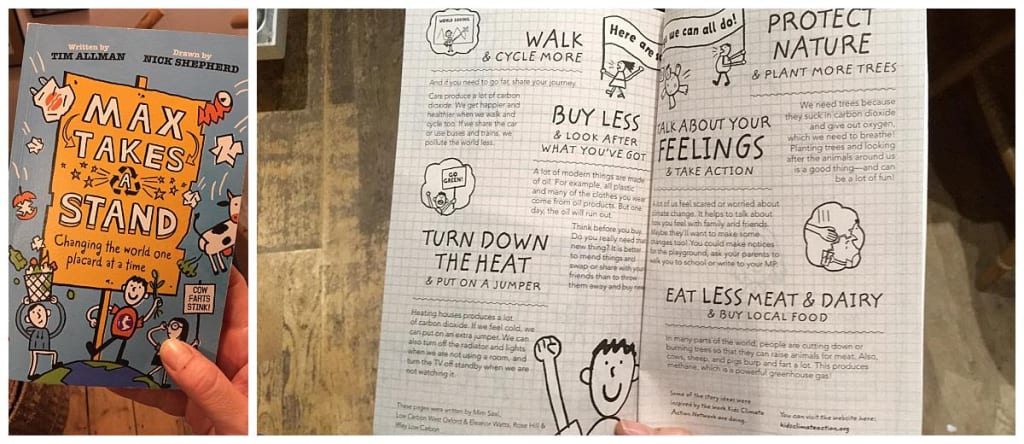 Written by
TIM ALLMAN
Drawn by
NICK SHEPHERD
MAX
TAKES
A
STAND
Changing the world one
placard at a time
COW
FARTS
STINK!
WALK
& CYCLE MORE
And if you need to go far, share your journey.
Cars produce a lot of carbon
dioxide. We get happier and
healthier when we walk and
cycle too. If we share the car
or use buses and trains, we
pollute the world less.
GO
GREEN!
TURN DOWN
THE HEAT
& PUT ON A JUMPER
Heating houses produces a lot
of carbon dioxide. If we feel cold, we
can put on an extra jumper. We can
also turn off the radiator and lights
when we are not using a room, and
turn the TV off standby when we are
not watching it.
These pages were written by Mim Saxl,
Low Carbon West Oxford & Eleanor Watts, Rose Hill &
Iffley Low Carbon
Here are
we can all do!
BUY LESS
& LOOK AFTER
WHAT YOU'VE GOT
A lot of modern things are made
of oil. For example, all plastic
and many of the clothes you wear
come from oil products. But one
day, the oil will run out.
Think before you buy.
Do you really need that
new thing? It is better
to mend things and
swap or share with your
friends than to throw
them away and buy new
PROTECT
NATURE
& PLANT MORE TREES
We need trees because
they suck in carbon dioxide
and give out oxygen,
which we need to breathe!
Planting trees and looking
after the animals around us
is a good thing—and can
be a lot of fun!
TALK ABOUT YOUR
FEELINGS
& TAKE ACTION
lot of us feel scared or worried about
climate change. It helps to talk about
how you feel with family and friends.
Maybe they'll want to make some
changes too! You could make notices
for the playground, ask your parents to
walk you to school or write to your MP.
EAT LESS MEAT & DAIRY
& BUY LOCAL FOOD
In many parts of the world, people are cutting down or
burning trees so that they can raise animals for meat. Also,
cows, sheep, and pigs burp and fart a lot. This produces
methane, which is a powerful greenhouse gas!
Some of the story ideas were
inspired by the work Kids Climate
Action Network are doing.
You can visit the website here:
kidsclimateaction.org